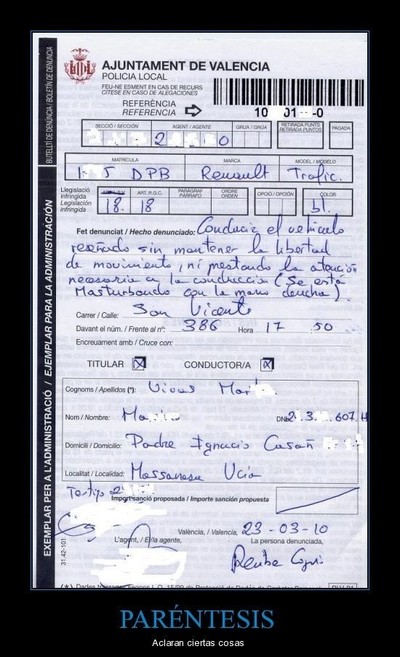 AJUNTAMENT DE VALENCIA
POLICIA LOCAL
FEU-NE ESMENT EN CAS DE RECURS
CÍTESE EN CASO DE ALEGACIONES
REFERÈNCIA
REFERENCIA
10 01 -0
SECCIÓ / SECCIÓN AGENT / AGENTE GRUA / GRÚA RETIRADA PUNTS PAGADA
RETIRADA PUNTOS
2 0
MATRÍCULA MARCA MODEL / MODELO
5 DPB Renault Trafic.
Legislació infringida ART. R.G.C. PARÀGRAF ORDRE OPCIÓ / OPCIÓN COLOR
Legislación infringida PÁRRAFO ORDEN
18. 18 bl.
Fet denunciat / Hecho denunciado: Conducir el vehículo
reseñado sin mantener la libertad
de movimiento, ni prestando la atención
necesaria a la conducción (Se está
Masturbando con la mano derecha).
Carrer / Calle: San Vicente
Davant el núm. / Frente al nº: 386 Hora 17 50
Encreuament amb / Cruce con:
TITULAR X CONDUCTOR/A X
Cognoms / Apellidos (*): Vivas
Nom / Nombre:
DNI 2 3 607 H
Domicili / Domicilio: Padre Ignacio
Localitat / Localidad: Massanasa
Testigo 2
Import sanció proposada / Importe sanción propuesta
València, / Valencia, 23-03-10
L'agent, / El/la agente, La persona denunciada,
31.42-101
BUTLLETÍ DE DENÚNCIA / BOLETÍN DE DENUNCIA
EXEMPLAR PER A L'ADMINISTRACIÓ / EJEMPLAR PARA LA ADMINISTRACIÓN
PARÉNTESIS
Aclaran ciertas cosas